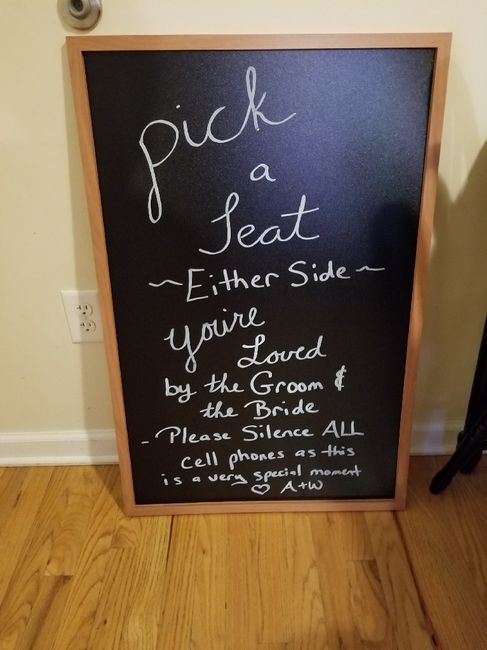 pick
a
Seat
~Either Side~
you're
Loved
by the Groom &
the Bride
- Please Silence ALL
cell phones as this
is a very special moment
♡ A+W